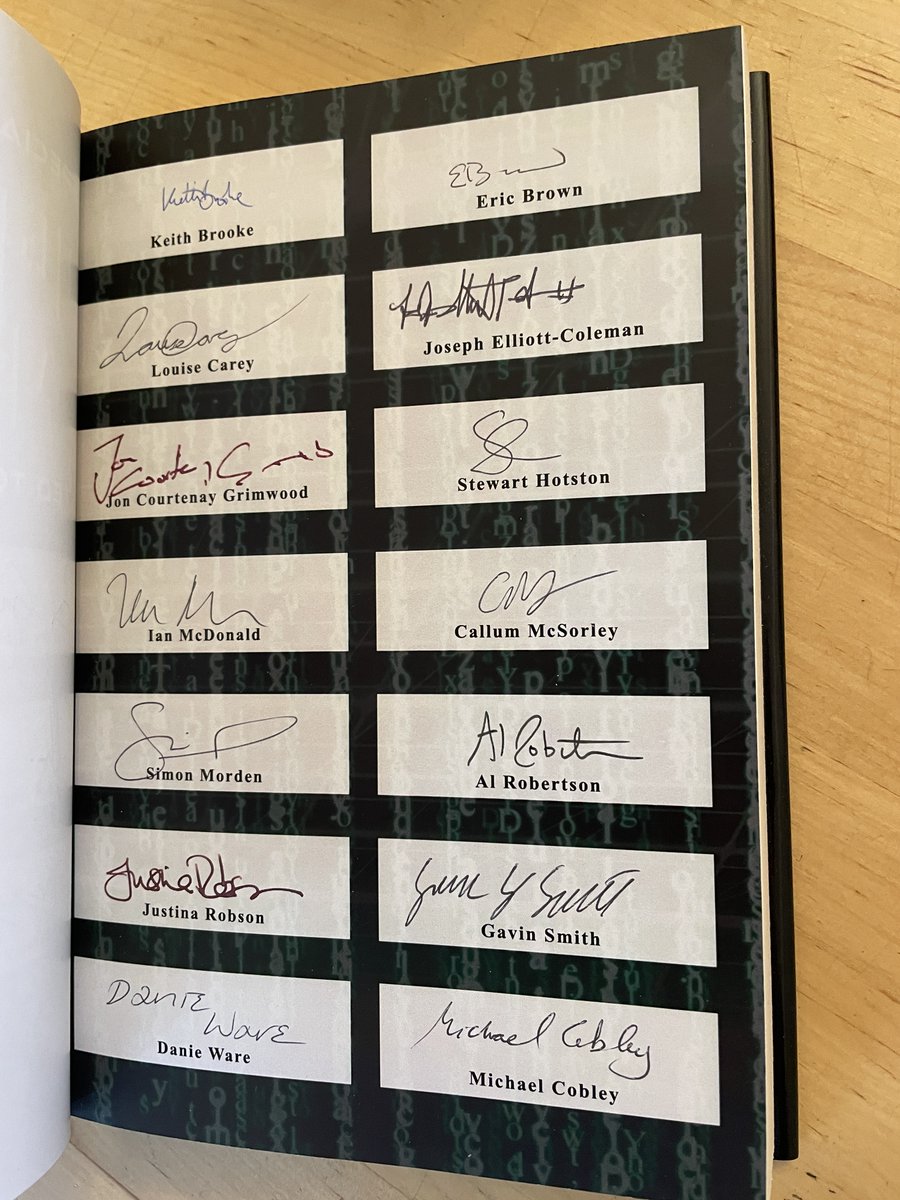 Keith Brooke
Keith Brooke
EBrown
Eric Brown
Louise Carey
Louise Carey
Joseph Elliott-Coleman
Jon
Courtenay Grimwood
Jon Courtenay Grimwood
Stewart Hotston
Ian McDonald
Callum McSorley
Simon Morden
Al Robertson
Al Robertson
Justina Robson
Justina Robson
Gavin G Smith
Gavin Smith
Danie
Ware
Danie Ware
Michael Cobley
Michael Cobley